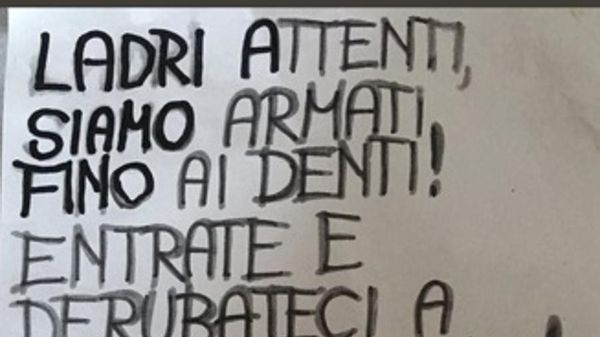 LADRI ATTENTI,
SIAMO ARMATI
FINO AI DENTI!
ENTRATE E
DERUBATECI A